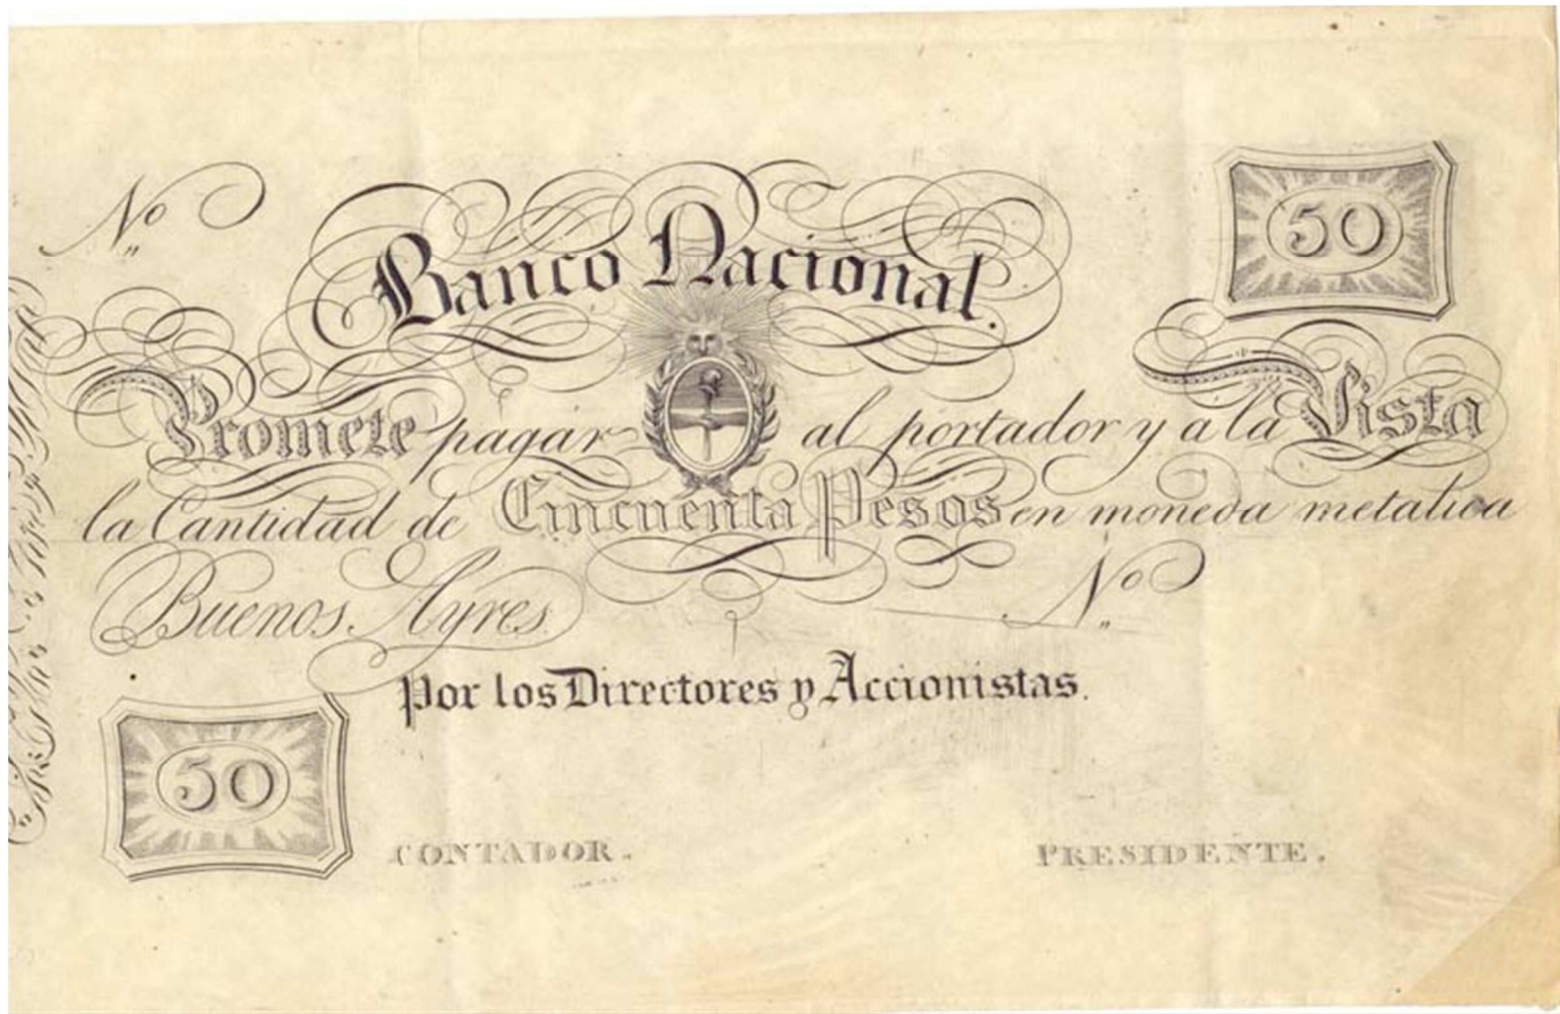 No
50
Banco Nacional.
Promete pagar al portador y a la Vista
la Cantidad de Cincuenta Pesos en moneda metalica
Buenos Ayres No
Por los Directores y Accionistas.
50
CONTADOR. PRESIDENTE.